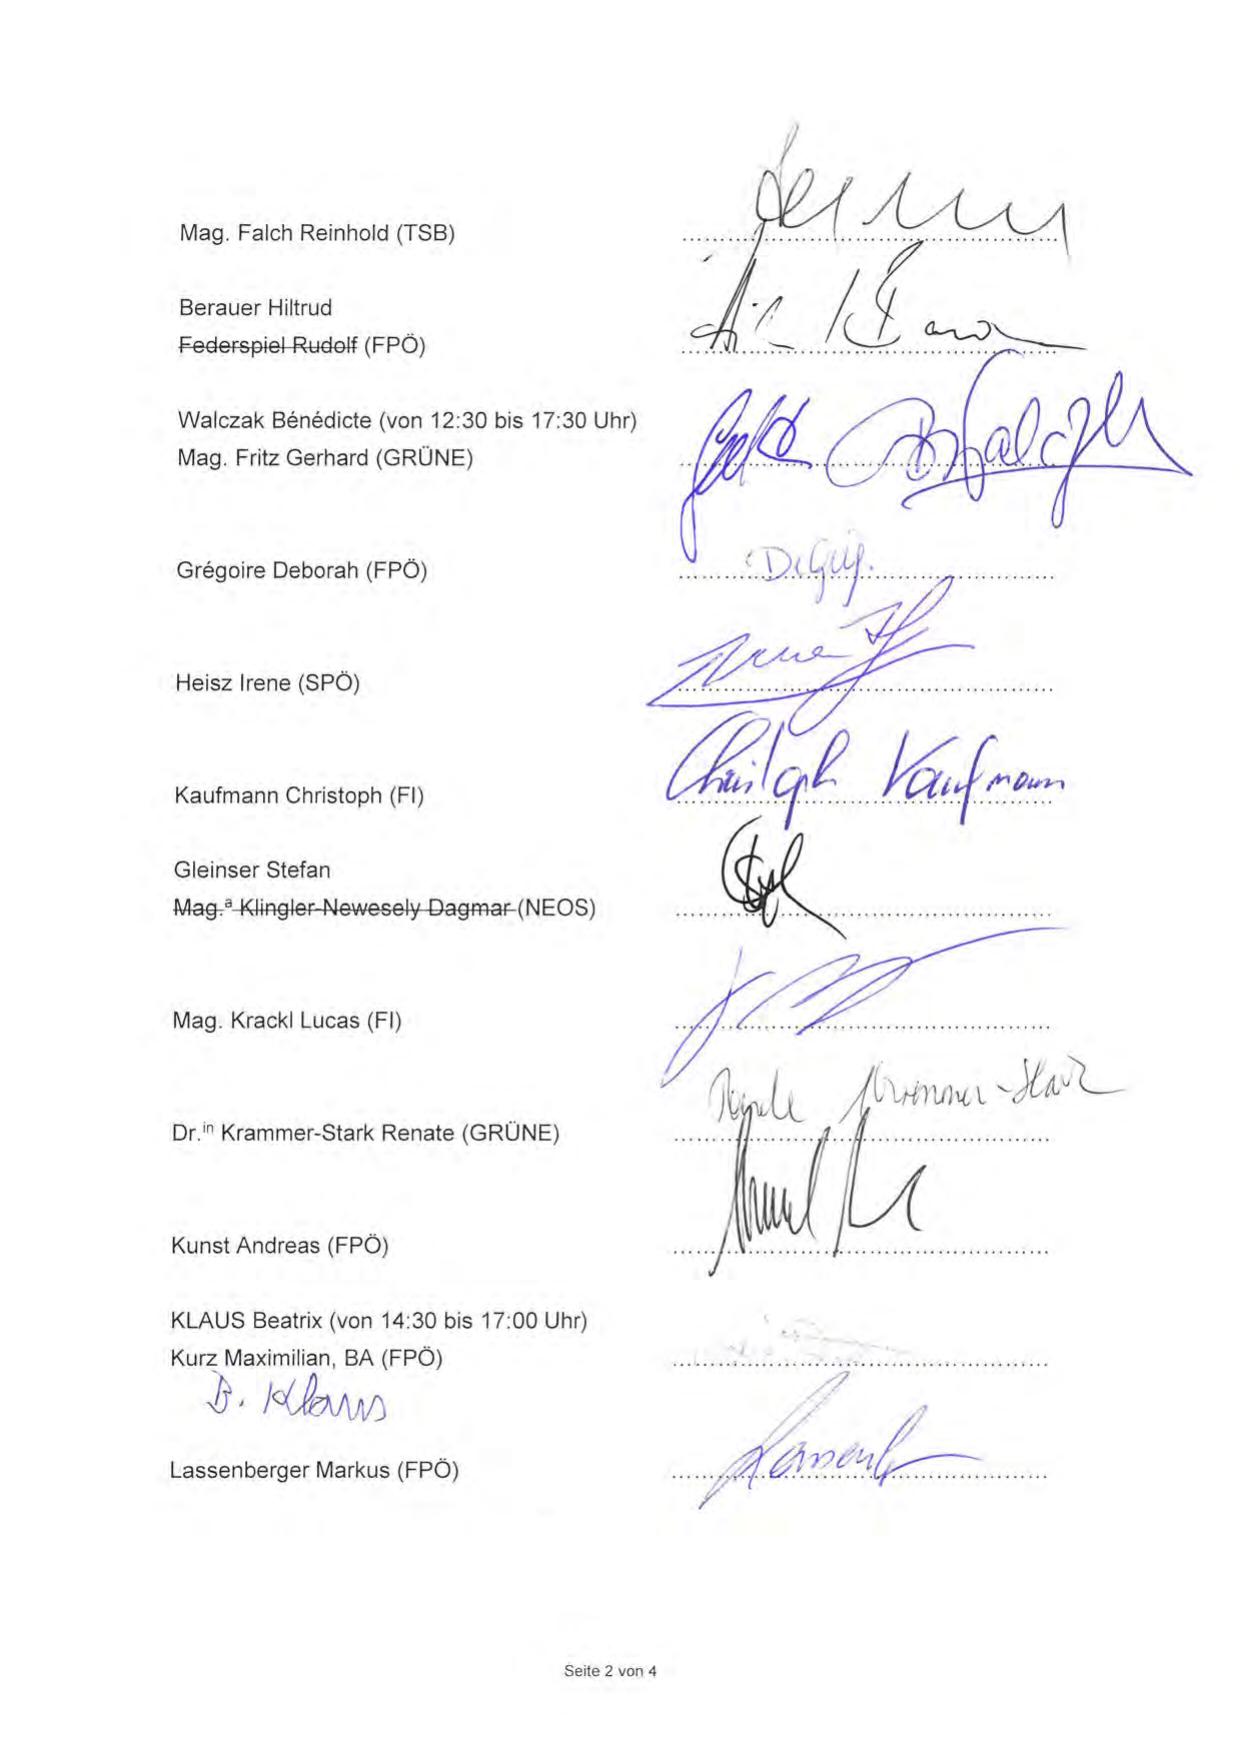 Mag. Falch Reinhold (TSB)
Berauer Hiltrud
Federspiel Rudolf (FPÖ)
Walczak Bénédicte (von 12:30 bis 17:30 Uhr)
Mag. Fritz Gerhard (GRÜNE)
B Walczak
Grégoire Deborah (FPÖ)
Heisz Irene (SPÖ)
Kaufmann Christoph (FI)
Christoph Kaufmann
Gleinser Stefan
Mag.ª Klingler-Newesely Dagmar (NEOS)
Mag. Krackl Lucas (FI)
Dr.ⁱⁿ Krammer-Stark Renate (GRÜNE)
Renate Krammer-Stark
Kunst Andreas (FPÖ)
KLAUS Beatrix (von 14:30 bis 17:00 Uhr)
Kurz Maximilian, BA (FPÖ)
B. Klaus
Lassenberger Markus (FPÖ)
Seite 2 von 4